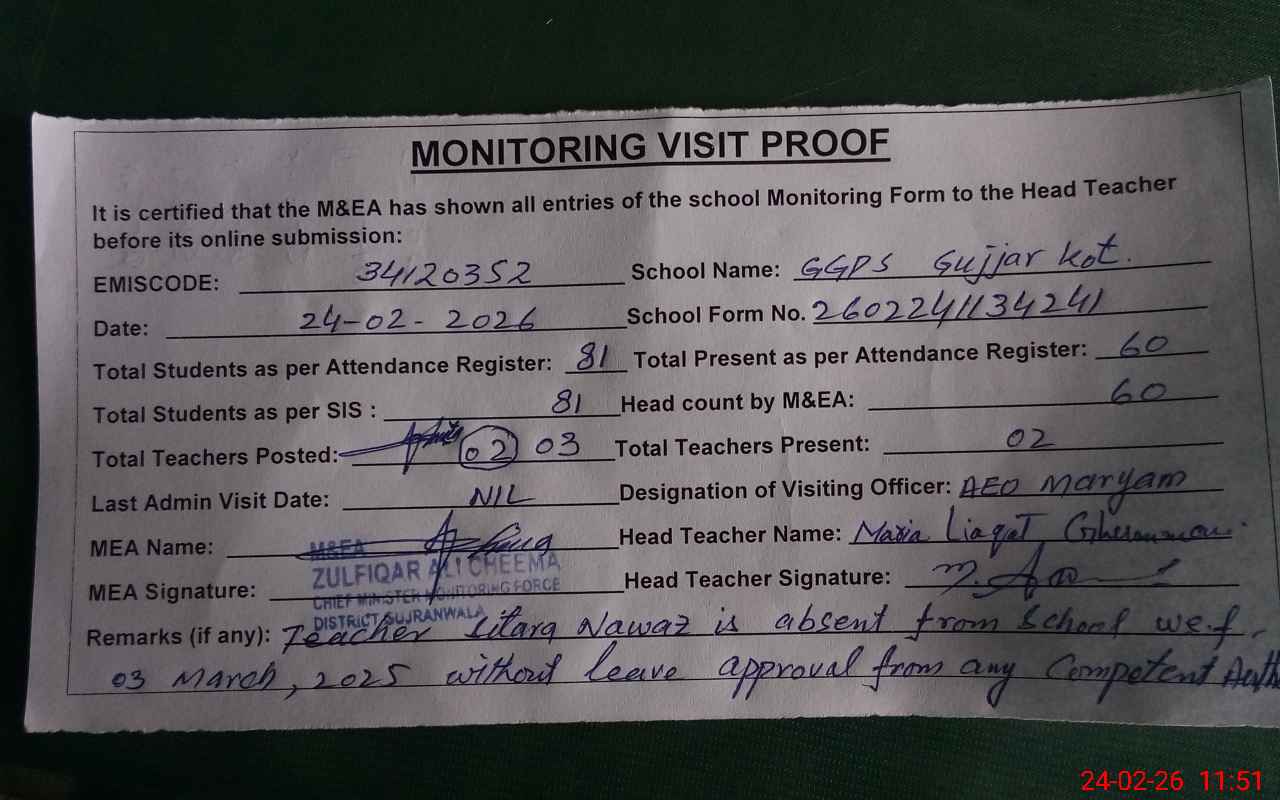 MONITORING VISIT PROOF
It is certified that the M&EA has shown all entries of the school Monitoring Form to the Head Teacher
before its online submission:
EMISCODE: 34120352 School Name: GGPS Gujjar Kot.
Date: 24-02-2026 School Form No. 2602241134241
Total Students as per Attendance Register: 81 Total Present as per Attendance Register: 60
Total Students as per SIS : 81 Head count by M&EA: 60
Total Teachers Posted: 02 03 Total Teachers Present: 02
Last Admin Visit Date: NIL Designation of Visiting Officer: AEO Maryam
MEA Name: Head Teacher Name: Maria Liaqat
M&EA
ZULFIQAR ALI CHEEMA
MEA Signature: Head Teacher Signature:
CHIEF MINISTER MONITORING FORCE
DISTRICT GUJRANWALA
Remarks (if any): Teacher Sitara Nawaz is absent from School w.e.f.
03 March, 2025 without leave approval from any Competent Auth
24-02-26 11:51